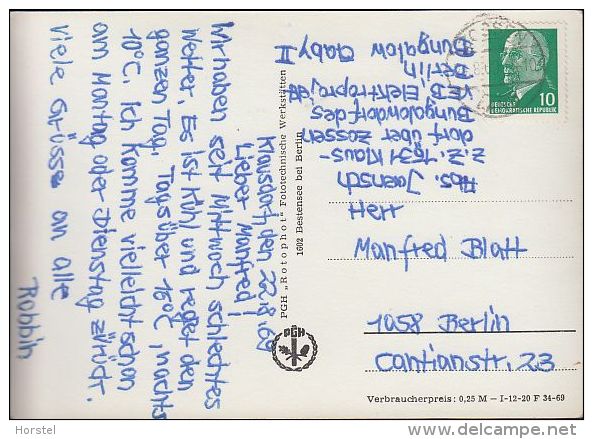 Klausdorf, den 22.8.69
Lieber Manfred!
Wir haben seit Mittwoch schlechtes
Wetter. Es ist kühl und regnet den
ganzen Tag. Tagsüber 16°C, nachts
10°C. Ich komme vielleicht schon
am Montag oder Dienstag zurück.
Viele Grüsse an alle
Robbin
PGH „Rotophot" Fototechnische Werkstätten
1602 Bestensee bei Berlin
PGH
Abs. Jaensch
z.Z. 1631 Klaus-
dorf über Zossen
Bungalowdorf des
VEB Elektroprojekt
Berlin
Bungalow Gaby II
DEUTSCHE
DEMOKRATISCHE REPUBLIK
10
Herr
Manfred Blatt
1058 Berlin
Cantianstr. 23
Verbraucherpreis: 0,25 M – I-12-20 F 34-69
Horstel
delcampe.net